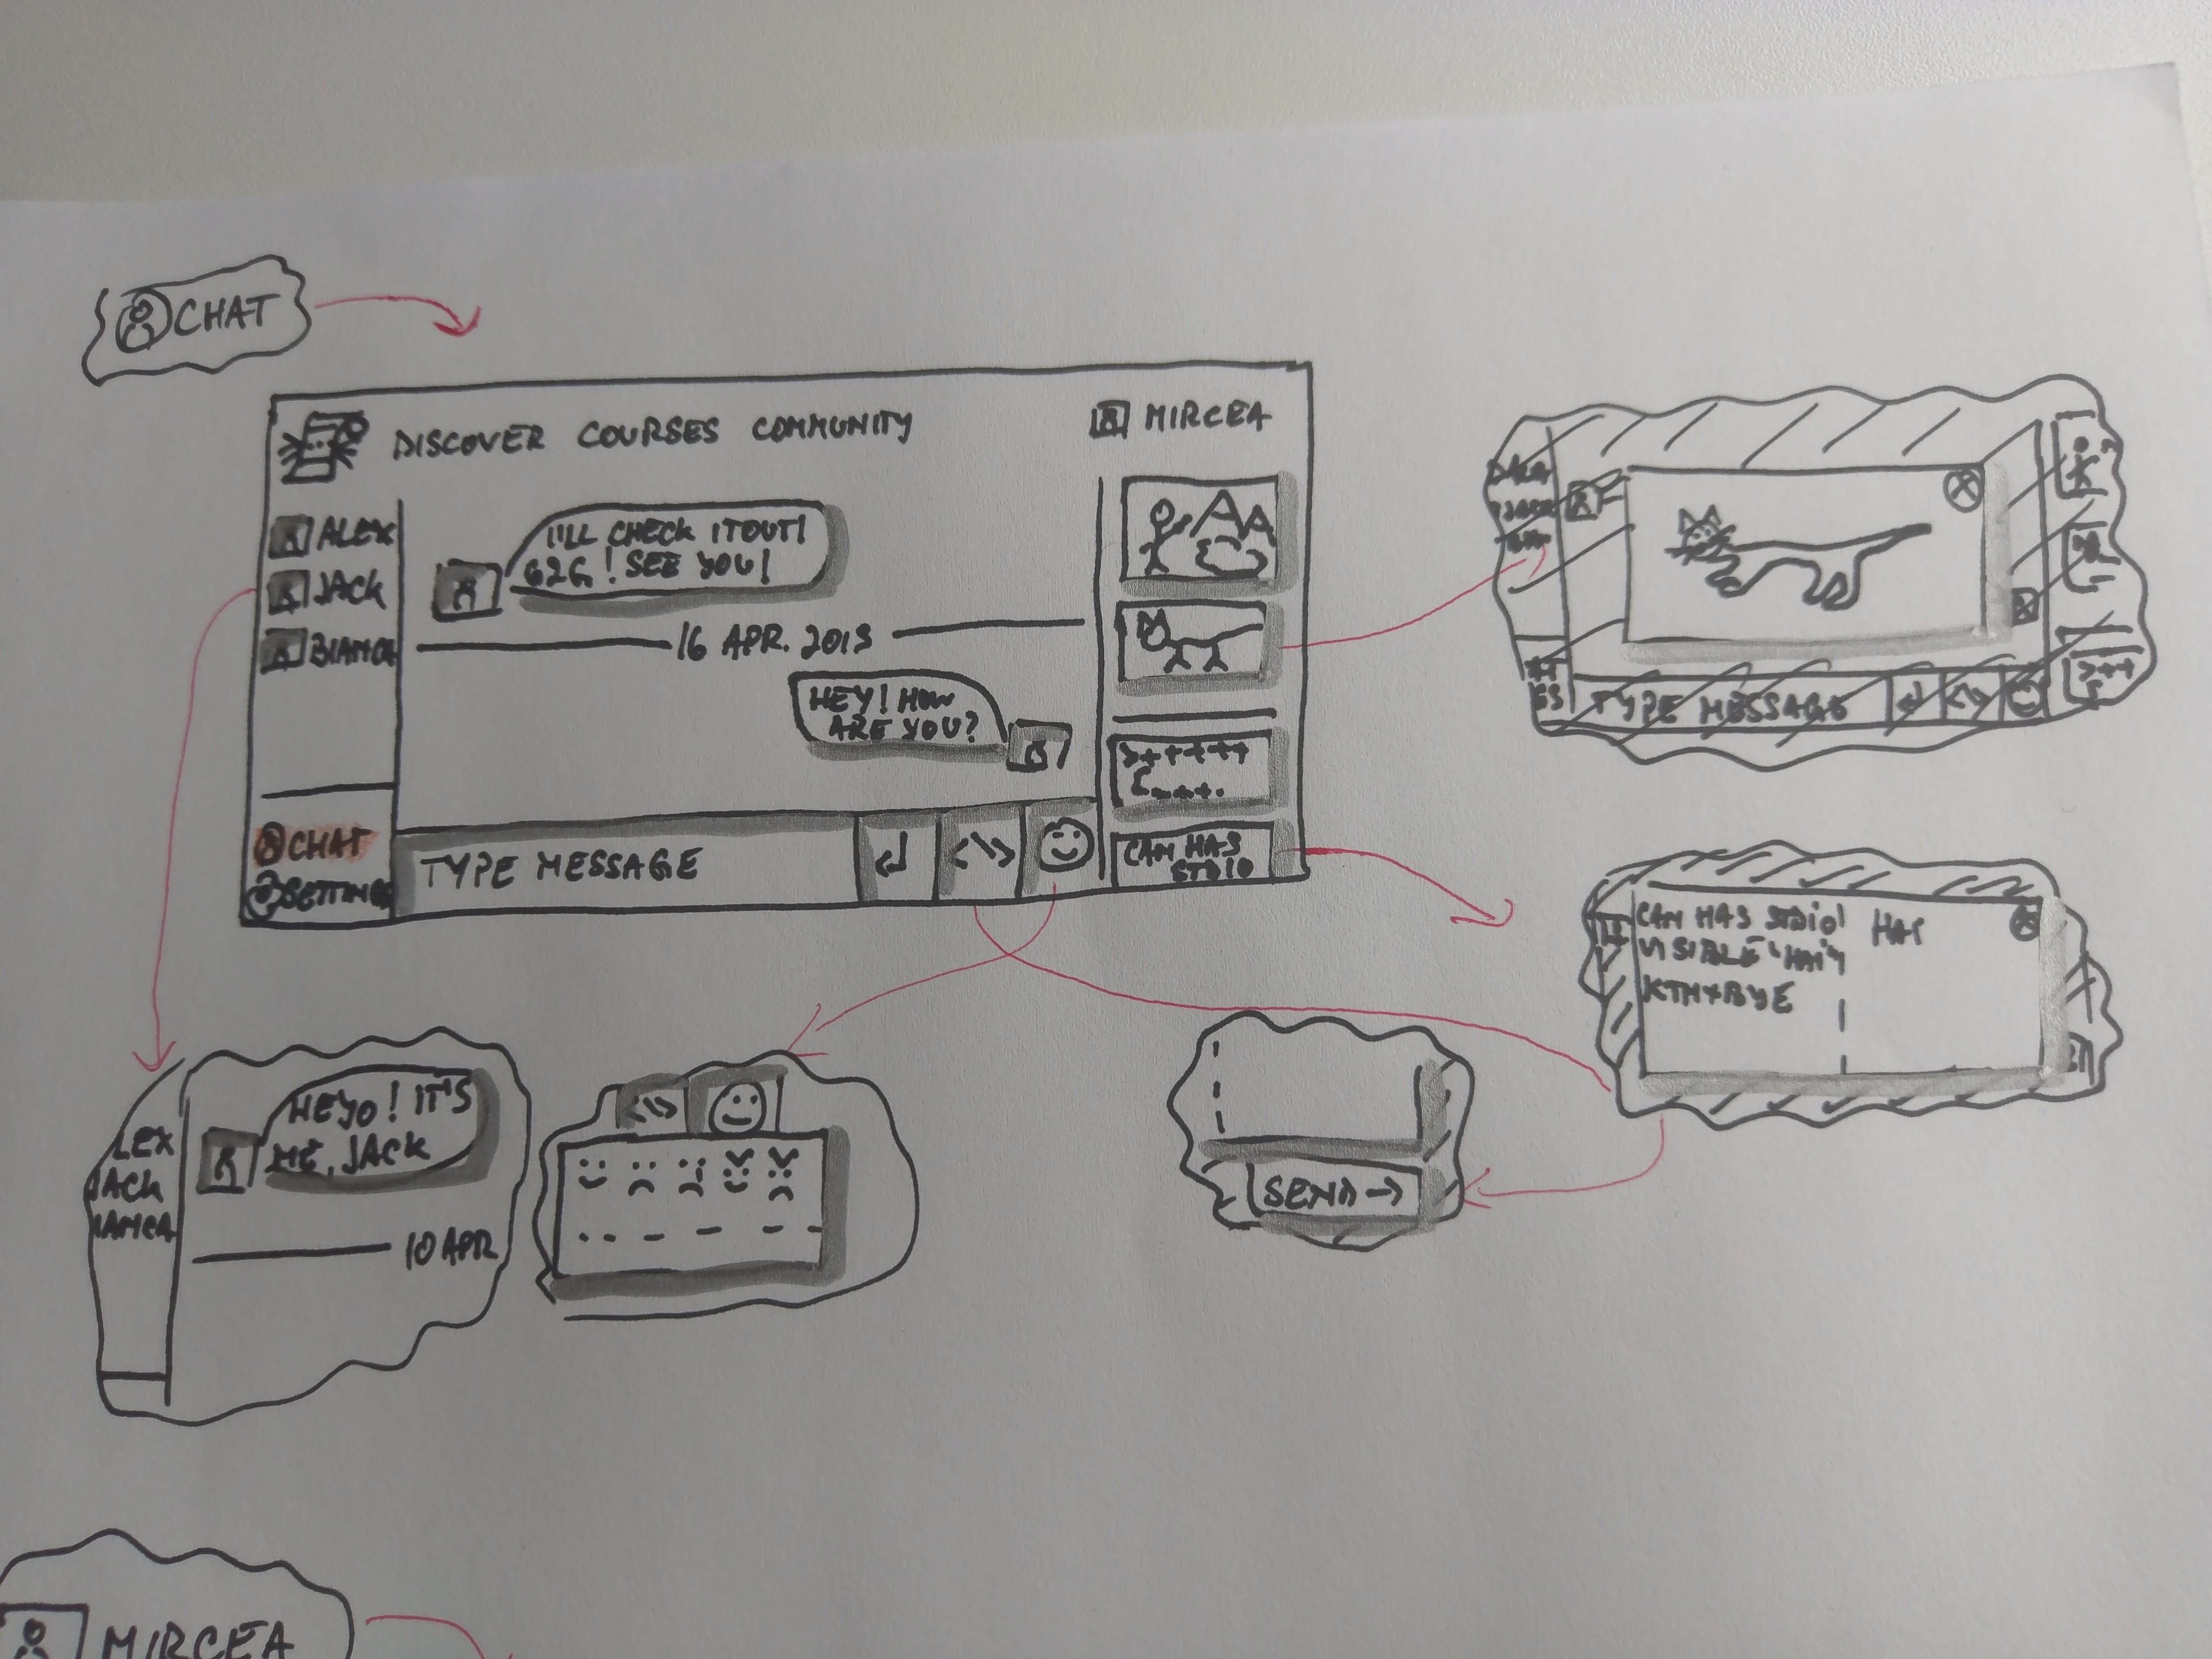 CHAT
DISCOVER COURSES COMMUNITY
MIRCEA
ALEX
JACK
I'LL CHECK IT OUT!
G2G! SEE YOU!
16 APR. 2013
HEY! HOW
ARE YOU?
CHAT
SETTINGS
TYPE MESSAGE
<\>
>++++++
CAN HAS
STDIO
TYPE MESSAGE
<\>
>++
CAN HAS STDIO!
VISIBLE "HAI"
KTHXBYE
HAI
LEX
JACK
HEYO! IT'S
ME, JACK
10 APR
<\>
SEND →
MIRCEA